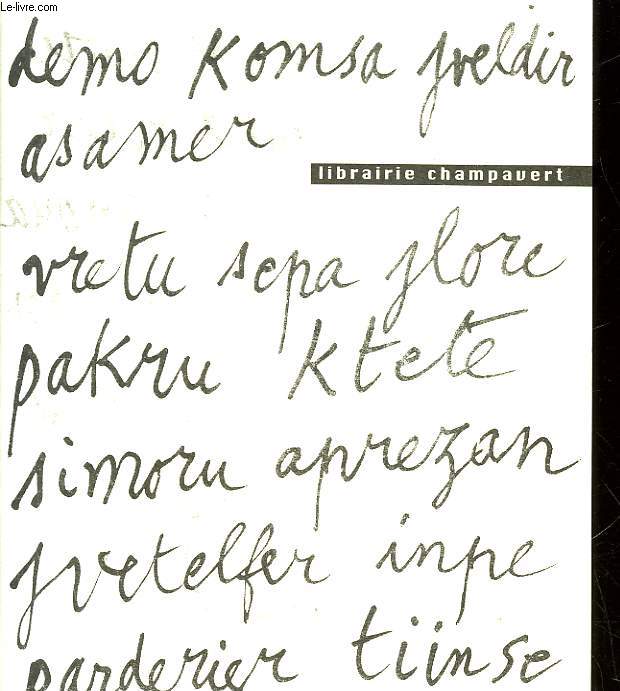 © Le-livre.com
demo komsa jveldir
asamer
librairie champavert
vretu sepa jlore
pakru ktete
simoru aprezan
jvetelfer inpe
parderier tiinse